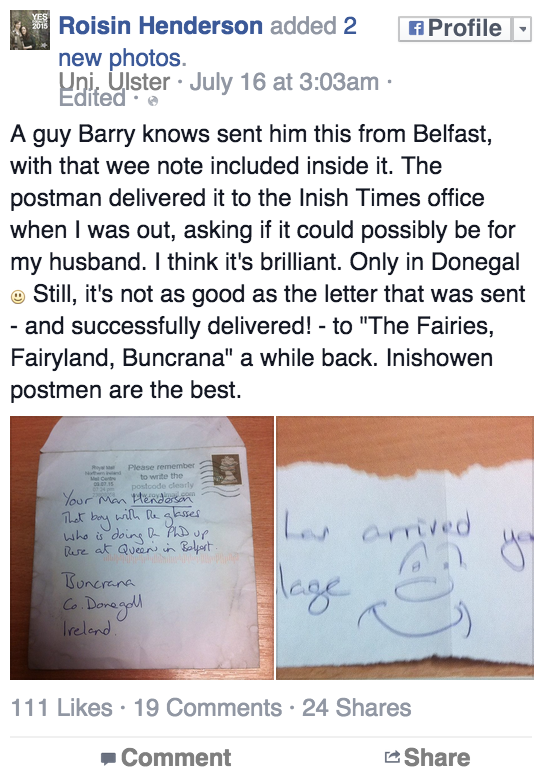 YES
2015
Roisin Henderson added 2
new photos.
Profile
Uni. Ulster · July 16 at 3:03am ·
Edited ·
A guy Barry knows sent him this from Belfast,
with that wee note included inside it. The
postman delivered it to the Inish Times office
when I was out, asking if it could possibly be for
my husband. I think it's brilliant. Only in Donegal
Still, it's not as good as the letter that was sent
- and successfully delivered! - to "The Fairies,
Fairyland, Buncrana" a while back. Inishowen
postmen are the best.
Royal Mail
Northern Ireland
Mail Centre
Please remember
to write the
postcode clearly
Your Man Henderson
That boy with the glasses
who is doing the PhD up
here at Queen's in Belfast.
Buncrana
Co. Donegall
Ireland.
has arrived
111 Likes · 19 Comments · 24 Shares
Comment
Share